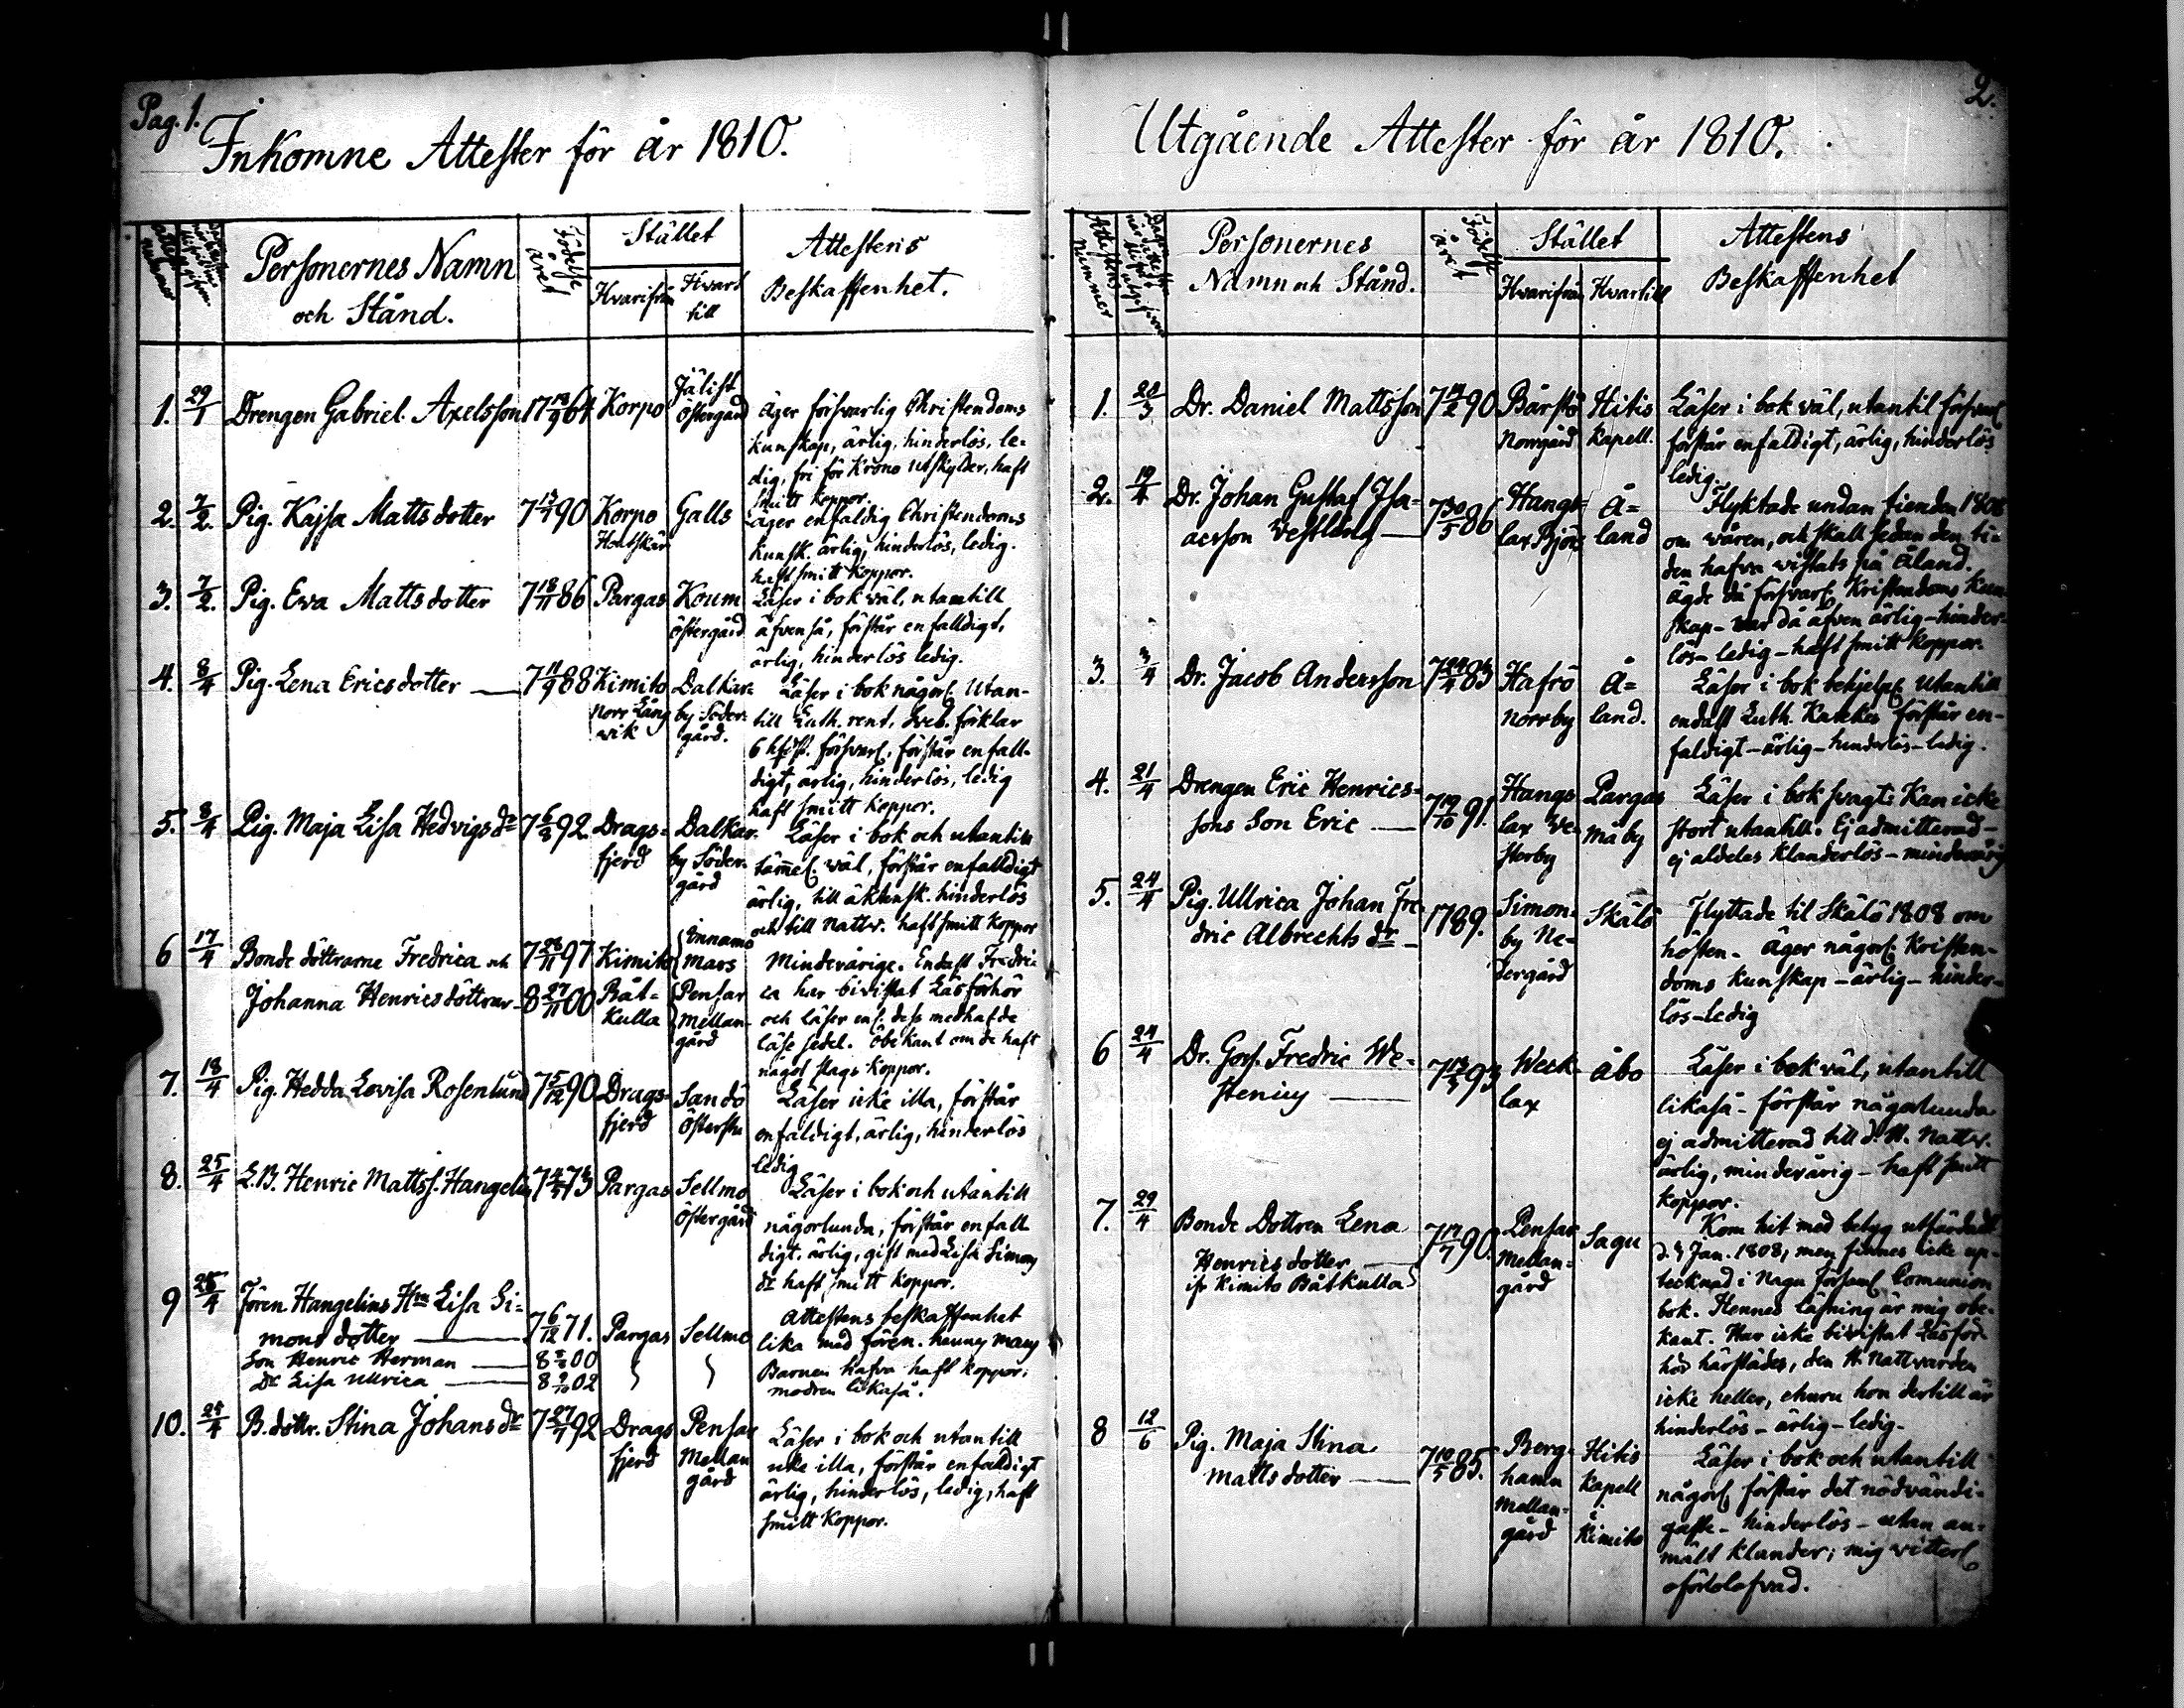 Pag. 1.
Inkomne Attester för år 1810.
Personernes Namn
och Stånd.
Födelse
året
Stället
Hvarifrån
Hvart
till
Attestens
Beskaffenhet.
1. 29/1 Drengen Gabriel Axelsson 17 18/9 64 Korpo
Jälist
Östergård
äger försvarlig Christendoms
kunskap, ärlig, hinderlös, le-
dig, fri för Krono utskylder, haft
smitt koppor.
2. 7/2. Pig. Kajsa Matts dotter 7 13/7 90 Korpo Galls
Houtskär
äger enfaldig Christendoms
kunsk. ärlig, hinderlös, ledig.
haft smitt koppor.
3. 7/2. Pig. Ewa Matts dotter 7 18/11 86 Pargas Koum
Östergård
Läser i bok väl, utantill
äfvenså, förstår enfalldigt,
ärlig, hinderlös ledig.
4. 8/4 Pig. Lena Erics dotter 7 11/9 88 Kimito Dalkar=
Norr Lång by Söder=
wik gård.
Läser i bok någorl. Utan-
till Luth. rent, Sveb. förklar
6 hfdst. försvarl. förstår enfall-
digt, ärlig, hinderlös, ledig
haft smitt koppor.
5. 8/4 Pig. Maja Lisa Hedvigs dr 7 6/3 92. Drags= Dalkar.
fjerd by Söder=
gård
Läser i bok och utantill
tämel. väl, förstår enfalldigt
ärlig, till äktensk. hinderlös
och till nattv. haft smitt koppor
6 17/4 Bonde döttrarne Fredrica och 7 28/11 97 Kimito
Johanna Henrics döttrar 8 27/11 00 Båt=
kulla
Innamo
mars
Pensar
Mellan-
gård
Mindeårige. Endast Fredri-
ca har bivistat Läsförhör
och läser enl. dess medhafde
läse sedel. Obekant om de haft
någol slags koppor.
7. 18/4 Pig. Hedda Lovisa Rosenlund 7 5/12 90 Drags= Sandö
fjerd
Läser icke illa, förstår
enfaldigt, ärlig, hinderlös
ledig
8. 25/4 L.B. Henric Mattss. Hangelin 7 4/7 73 Pargas Sellmo
Östergård
Läser i bok och utantill
någorlunda, förstår enfall
digt. ärlig, gift med Lisa Simons
dr haft smitt koppor.
9 25/4 Fören. Hangelins Hu Lisa Si=
mons dotter 7 6/12 71. Pargas Sellmo
Son Henric Herman 00
Dr Lisa Ullrica 8 9/10 02
Attestens beskaffenhet
lika med fören. hennes mans
Barnen hafva haft koppor.
modren likaså.
10. 25/4 B. dottr. Stina Johans dr 7 27/7 92 Drags Pensar
fjerd Mellan
gård
Läser i bok och utantill
icke illa, förstår enfaldigt
ärlig, hinderlös, ledig, haft
smitt koppor.
2.
Utgående Attester för år 1810.
Attestens
nummer
Personernes
Namn och Stånd.
Födelse
året
Stället
Hvarifrån Hvartill
Attestens
Beskaffenhet
1. 20/3 Dr. Daniel Mattsson 90 Bårstö Hitis
Norrgård Kapell.
Läser i bok väl, utantil försvarl.
förstår enfaldigt, ärlig, hinderlös
ledig.
2. 19/4 Dr. Johan Gustaf Isa=
acsson Vestling 7 30/5 86 Hangs= Å=
lax Björs land
Flyktade undan fienden 1808
om våren, och skall sedan den ti-
den hafva vistats på Åland.
ägde då försvarl. Kristendoms kun
skap - war då äfven ärlig - hinder-
lös - ledig - haft smitt koppor.
3. 3/4 Dr. Jacob Andersson 7 24/4 83 Hafrö Å=
Norrby land.
Läser i bok behjelpl. Utantill
endast Luth. Kateches förstår en-
faldigt - ärlig - hinderlös - ledig.
4. 21/4 Drengen Eric Henrics=
sons Son Eric 7 19/10 91. Hangs Pargas
lax We- Måby
sterby
Läser i bok svagt: Kan icke
stort utantill. Ej admitterad -
ej aldeles klanderlös - mindeårig
5. 24/4 Pig. Ullrica Johan Fre-
dric Albrechts dr 1789. Simon- Skälö
by Ne-
dergård
Flyttade til Skälö 1808 om
hösten - Äger någorl. Kristen-
doms kunskap - ärlig - hinder-
lös - ledig
6 24/4 Dr. Gosf. Fredric We-
stenius 93 Weck- Åbo
lax
Läser i bok väl, utantill
likaså - förstår någorlunda
ej admitterad till d. H. Nattv.
ärlig, mindeårig - haft smitt
koppor.
7. 29/4 Bonde Dottren Lena
Henrics dotter 7 17/7 90. Pensar Sagu
ifr Kimito Båtkulla Mellan=
gård
Kom hit med betyg utfärdadt
Jan. 1808, men finnes icke up-
tecknad i Nagu Församl Comunion
bok. Hennes läsning är mig obe-
kant. Har icke bivistat Läsför-
hör härstädes, den H. Nattvarden
icke heller, ehuru hon dertill är
hinderlös - ärlig - ledig -
8 12/6 Pig. Maja Stina
Matts dotter 7 10/5 85. Berg- Hitis
hamn Kapell
Mellan- i
gård Kimito
Läser i bok och utantill
någorl. förstår det nödvändi-
gaste - hinderlös - utan an-
mält klander; mig vitterl.
oförlofvad.